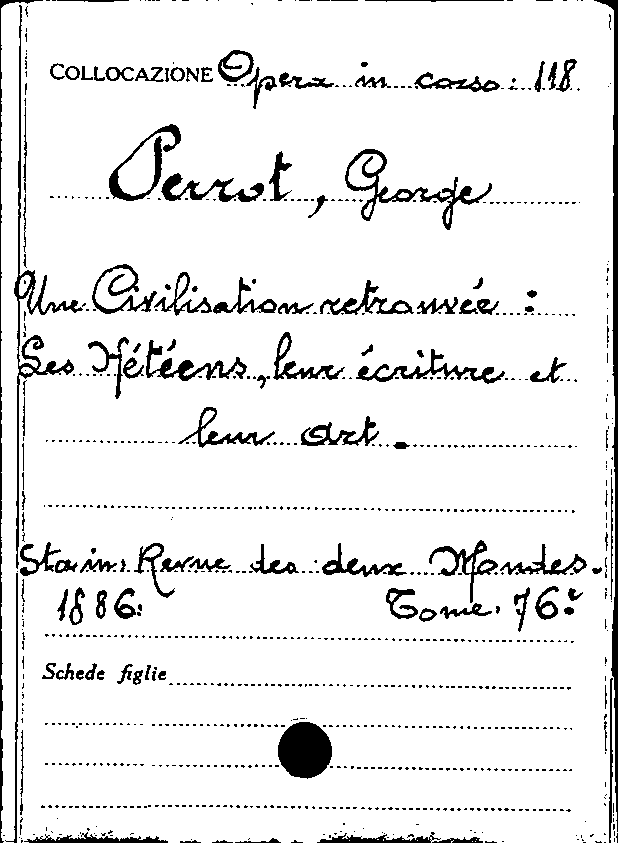 COLLOCAZIONE Opera in corso: 118
Perrot, George
Une Civilisation retrouvée :
Les Hétéens, leur écriture et
leur art.
Sta in: Revue des deux Mondes.
1886. Tome. 76º
Schede figlie